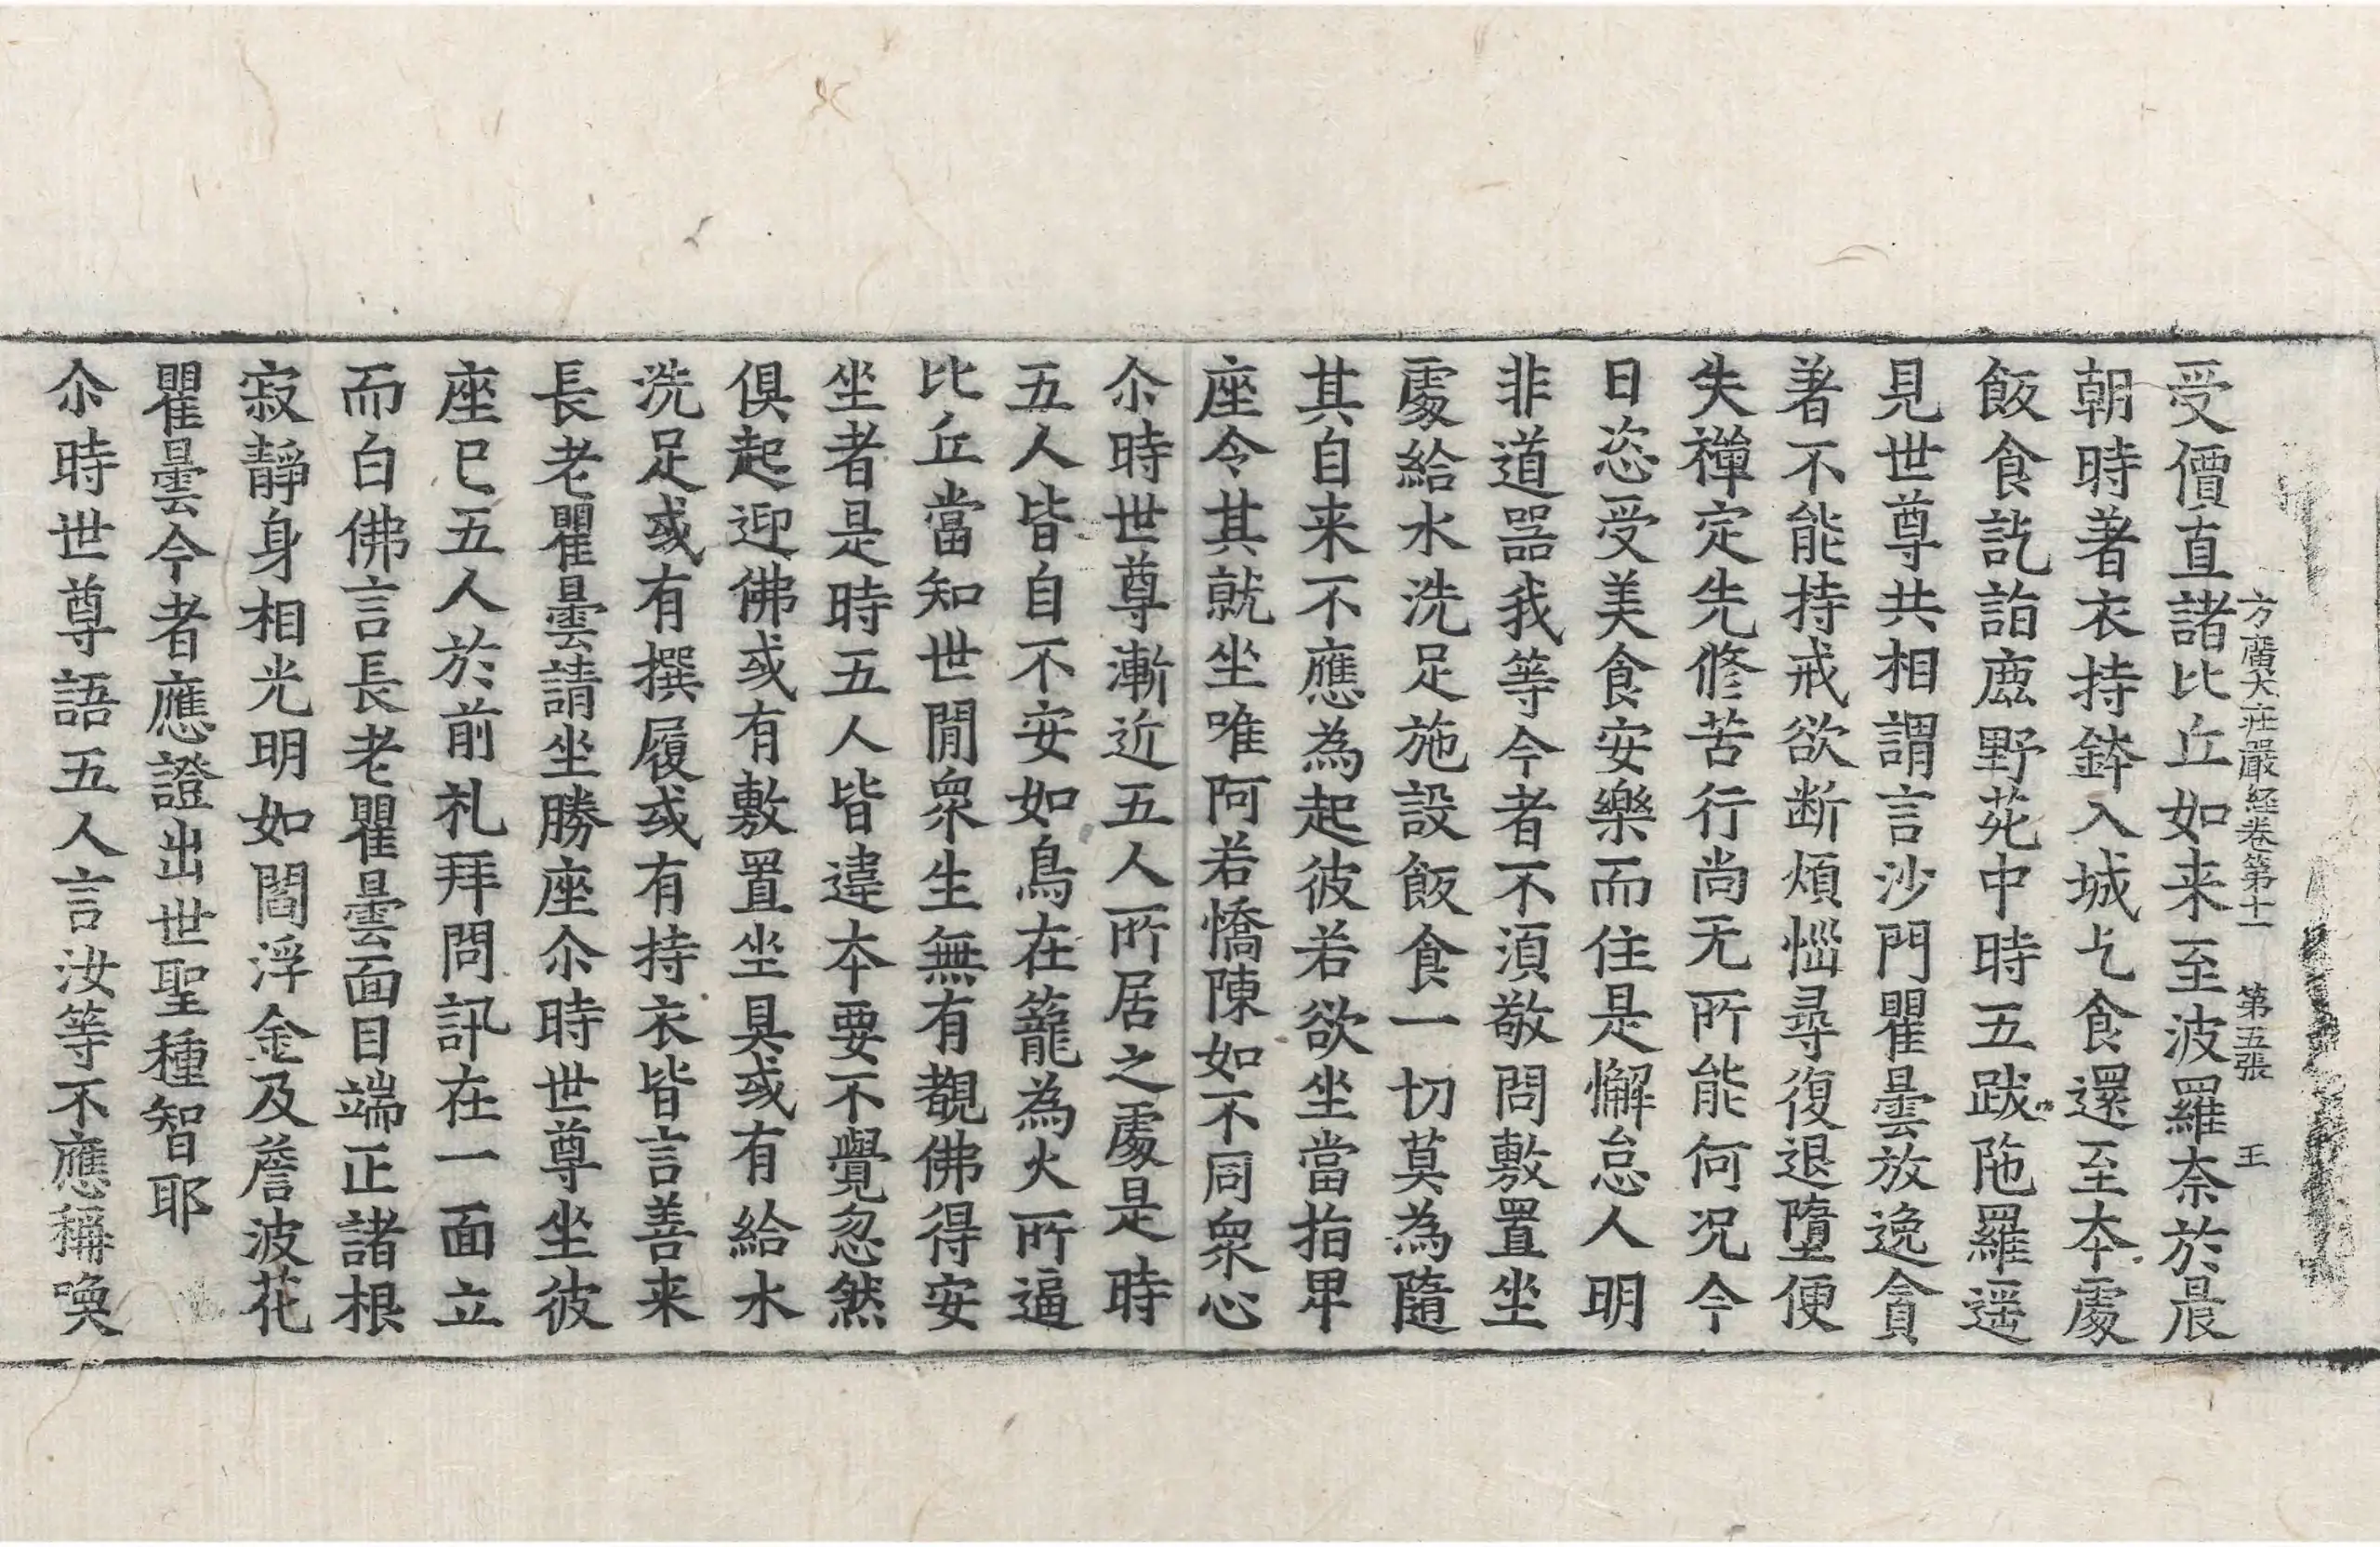 方廣大庄嚴経卷第十一 第五張 王
受價直諸比丘如来至波羅柰於晨
朝時著衣持鉢入城乞食還至夲處
飯食訖詣鹿野苑中時五跋陁羅遥
見世尊共相謂言沙門瞿曇放逸貪
著不能持戒欲断煩惱尋復退墮便
失禪定先脩苦行尚无所能何况今
日恣受美食安樂而住是懈怠人明
非道器我等今者不須敬問敷置坐
處給水洗足施設飯食一切莫為隨
其自来不應為起彼若欲坐當指卑
座令其就坐唯阿若憍陳如不同衆心
尒時世尊漸近五人所居之處是時
五人皆自不安如鳥在籠為火所逼
比丘當知世閒衆生無有覩佛得安
坐者是時五人皆違夲要不覺忽然
俱起迎佛或有敷置坐具或有給水
洗足或有撰履或有持衣皆言善来
長老瞿曇請坐勝座尒時世尊坐彼
座已五人於前礼拜問訊在一面立
而白佛言長老瞿曇面目端正諸根
寂靜身相光明如閻浮金及薝波花
瞿曇今者應證出世聖種智耶
尒時世尊語五人言汝等不應稱喚